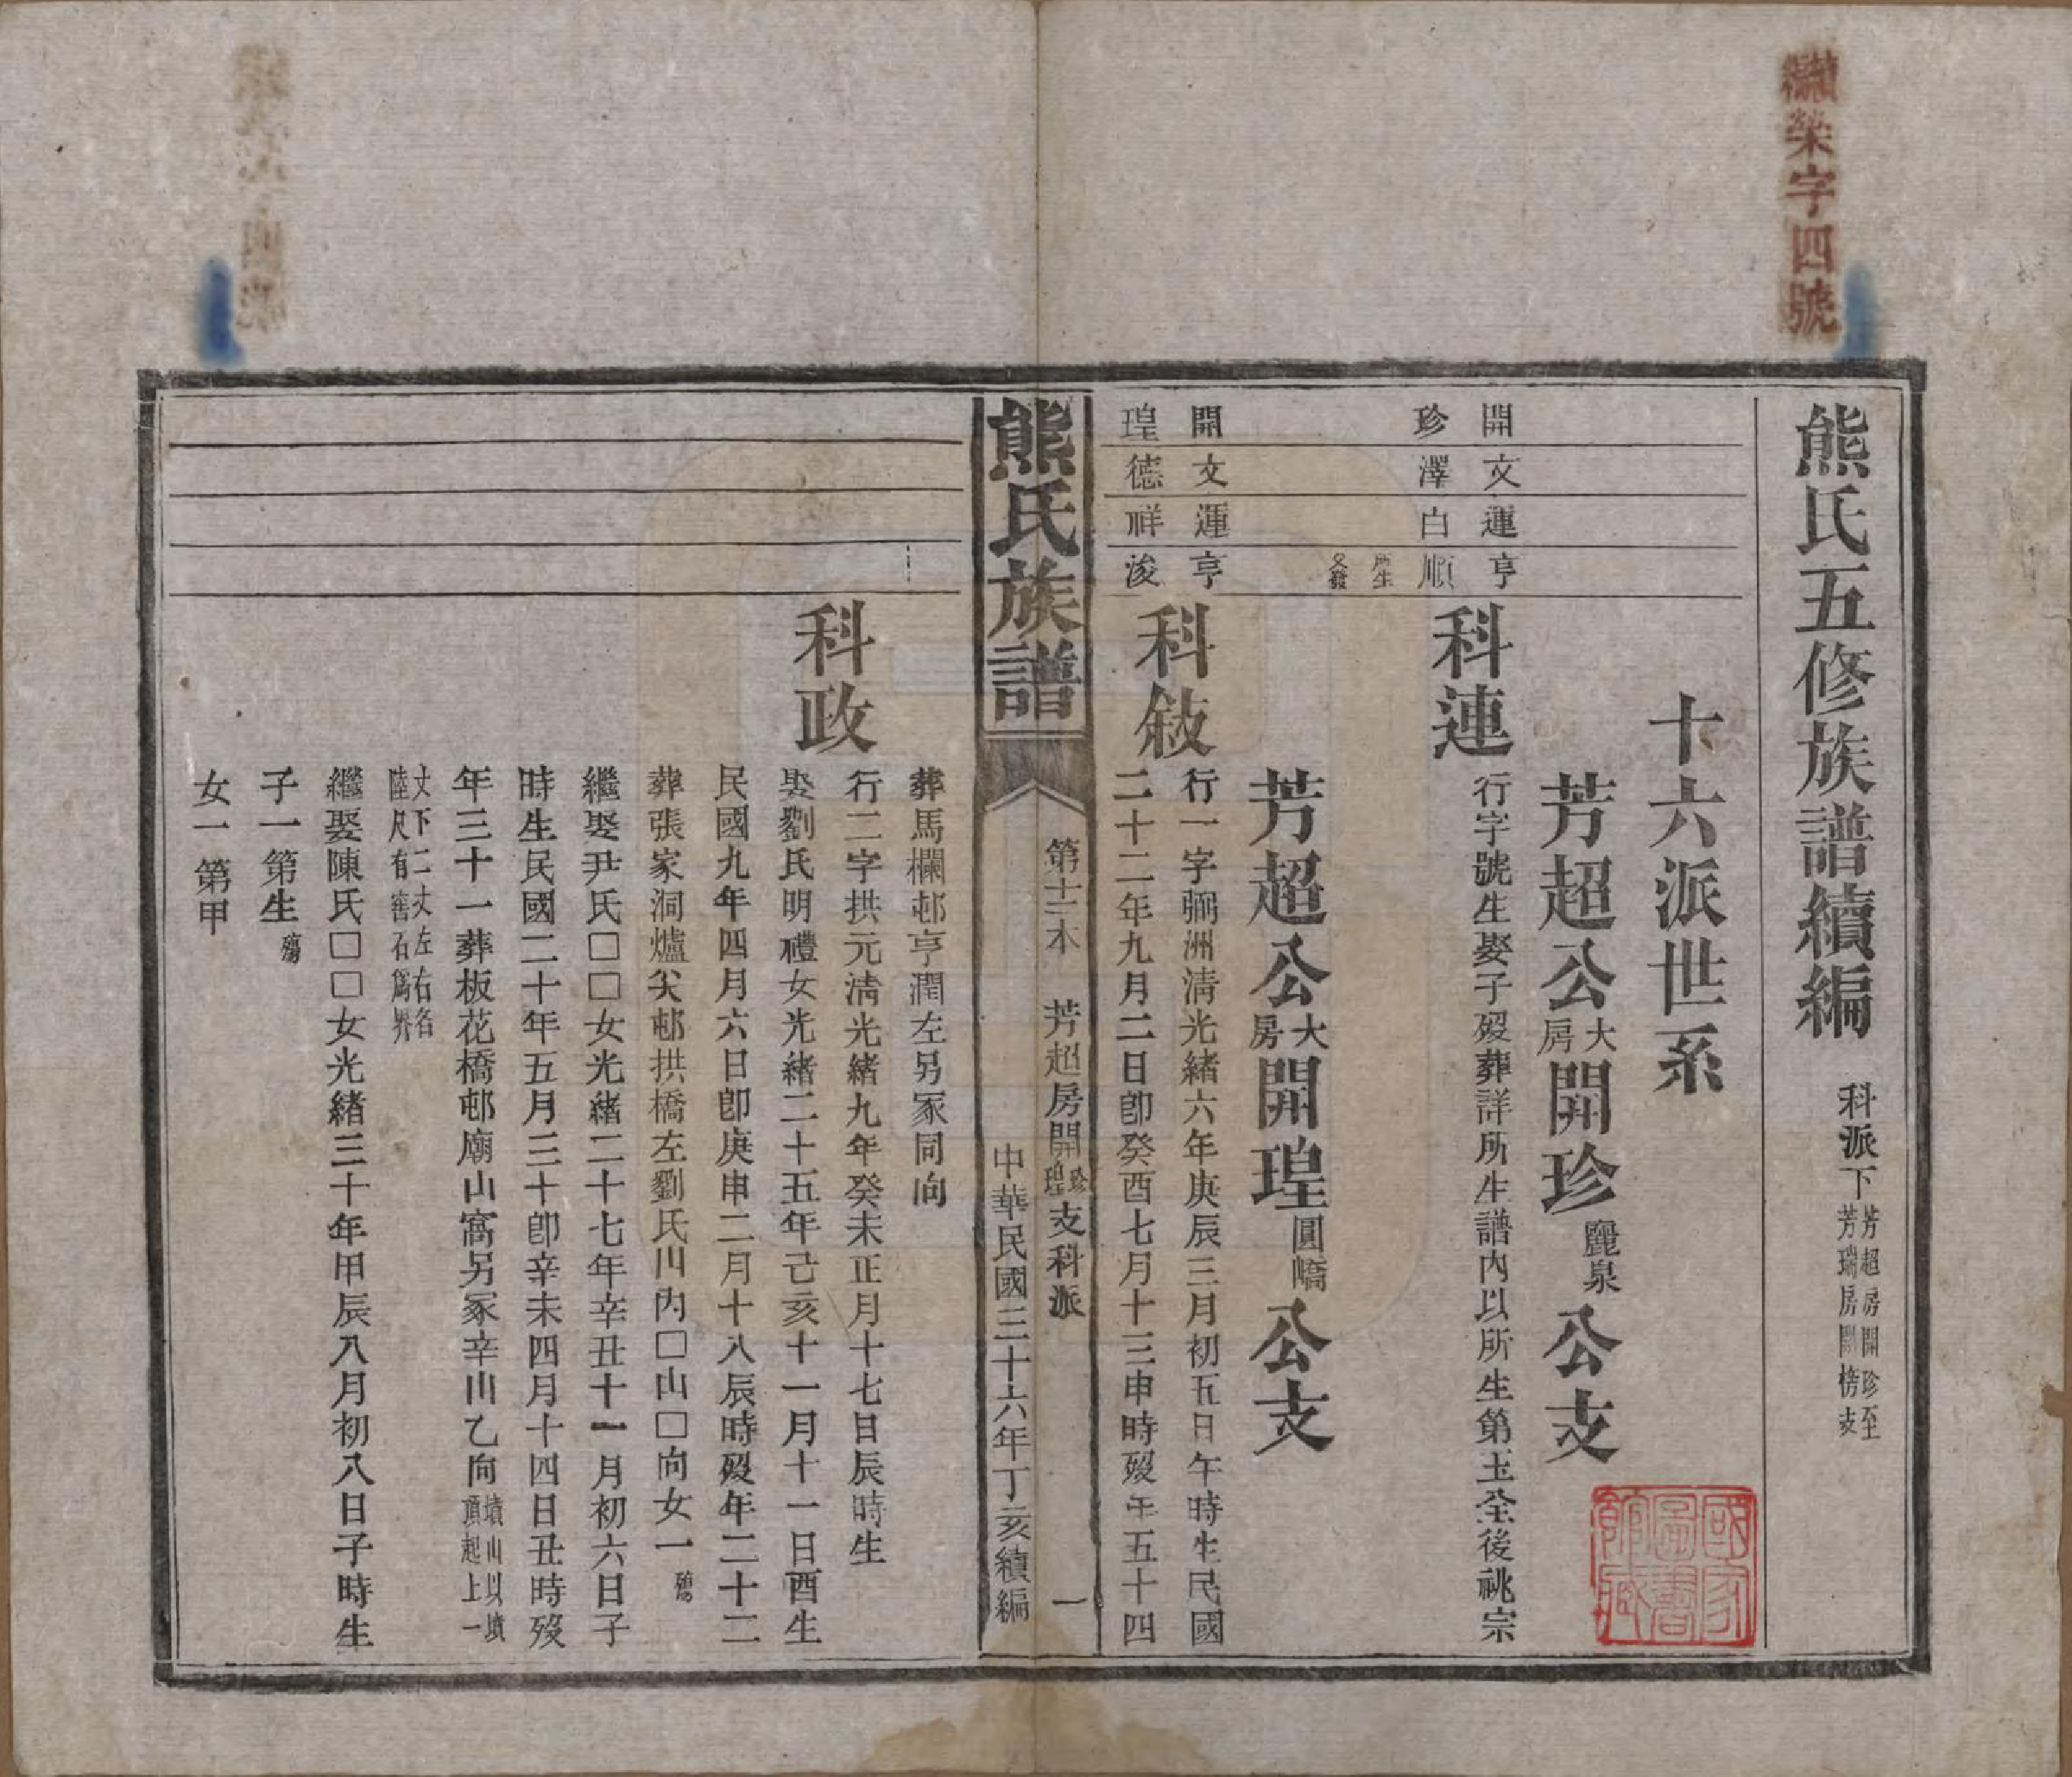 續編榮字四號
熊氏五修族譜續編 科派下 芳超房開珍至芳瑞房開榜支
十六派世系
芳超公大房開珍麗泉公支
開 文 運 亨
珍 澤 白 順
科連
行字號生娶子歿葬詳所生譜內以所生第玉全後祧宗
芳超公大房開瑝圓嶠公支
開 文 運 亨
瑝 德 祥 浚
科敍
行一字彌洲清光緒六年庚辰三月初五日午時生民國
二十二年九月二日卽癸酉七月十三申時歿年五十四
熊氏族譜
第十三本 芳超房開珍瑝支科派 一
中華民國三十六年丁亥續編
葬馬欄邨亨潤左另冢同向
科政
行二字拱元清光緒九年癸未正月十七日辰時生
娶劉氏明禮女光緒二十五年己亥十一月十一日酉生
民國九年四月六日卽庚申二月十八辰時歿年二十二
葬張家洞爐尖邨拱橋左劉氏川內□山□向女一殤
繼娶尹氏□□女光緒二十七年辛丑十一月初六日子
時生民國二十年五月三十卽辛未四月十四日丑時歿
年三十一葬板花橋邨廟山窩另冢辛山乙向墳山以墳頂起上一
丈下二丈左右各陸尺有窖石爲界
繼娶陳氏□□女光緒三十年甲辰八月初八日子時生
子一第生殤
女一第甲
國家圖書館藏